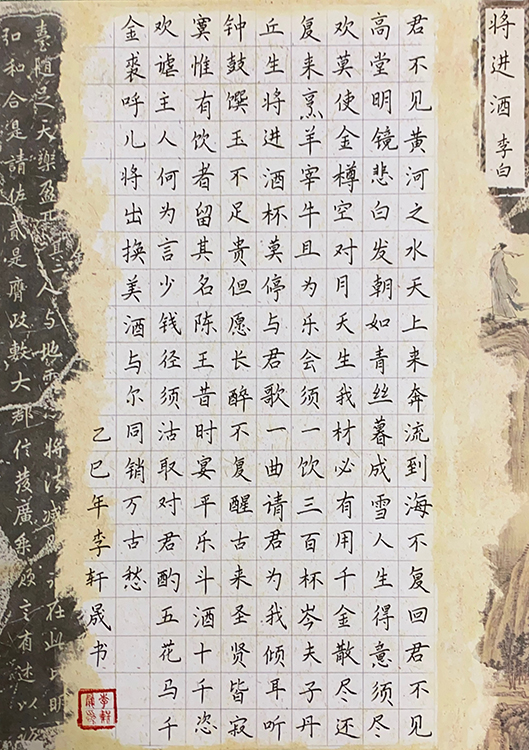 将进酒 李白
君不见黄河之水天上来奔流到海不复回君不见
高堂明镜悲白发朝如青丝暮成雪人生得意须尽
欢莫使金樽空对月天生我材必有用千金散尽还
复来烹羊宰牛且为乐会须一饮三百杯岑夫子丹
丘生将进酒杯莫停与君歌一曲请君为我倾耳听
钟鼓馔玉不足贵但愿长醉不复醒古来圣贤皆寂
寞惟有饮者留其名陈王昔时宴平乐斗酒十千恣
欢谑主人何为言少钱径须沽取对君酌五花马千
金裘呼儿将出换美酒与尔同销万古愁
乙巳年李轩晟书